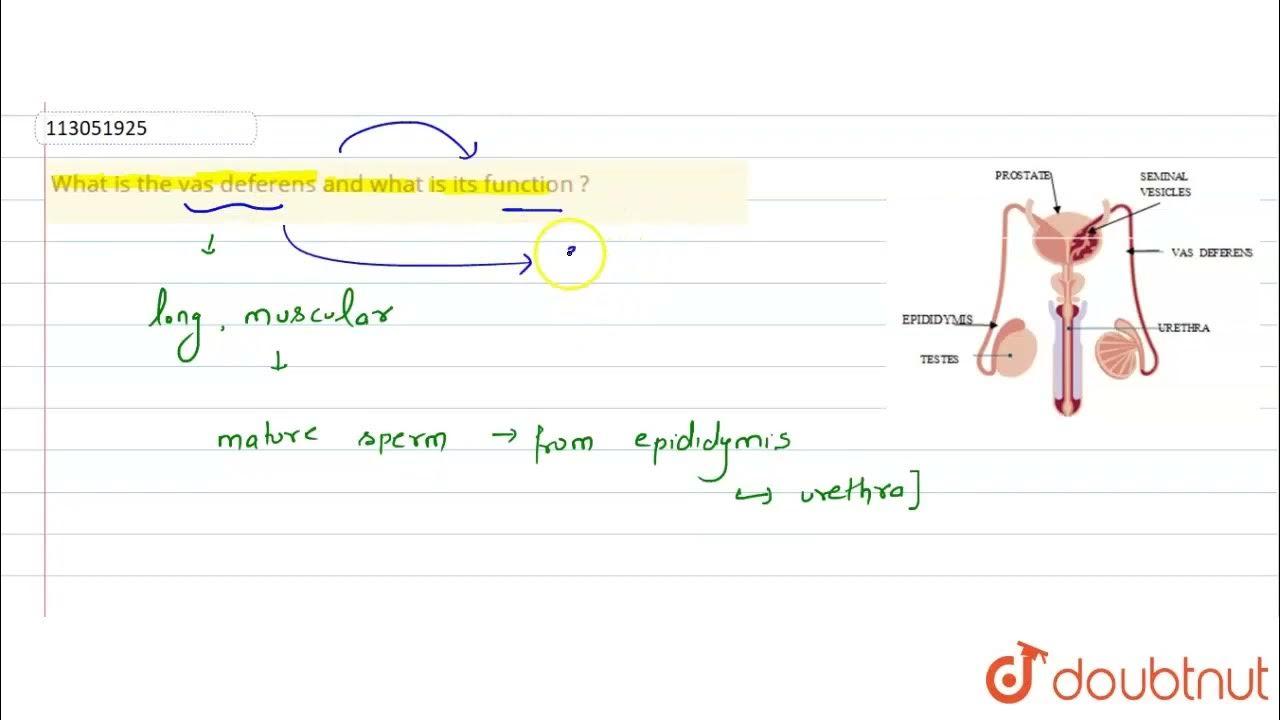 113051925
What is the vas deferens and what is its function ?
?
long, muscular
mature sperm → from epididymis
↔ urethra]
PROSTATE
SEMINAL
VESICLES
VAS DEFERENS
EPIDIDYMIS
URETHRA
TESTES
doubtnut